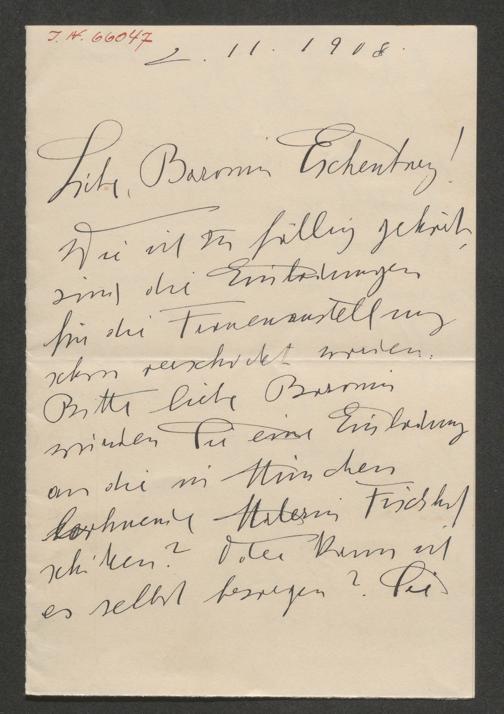 J. N. 66047
2. 11. 1908.
Liebe, Baronin Eschenburg!
Wie ich
sind die Einladungen
für die Frauenausstellung
schon verschickt worden.
Bitte liebe Baronin
würden Sie eine Einladung
an die in München
Malerin
schicken? Oder kann ich
es selbst besorgen? Sie